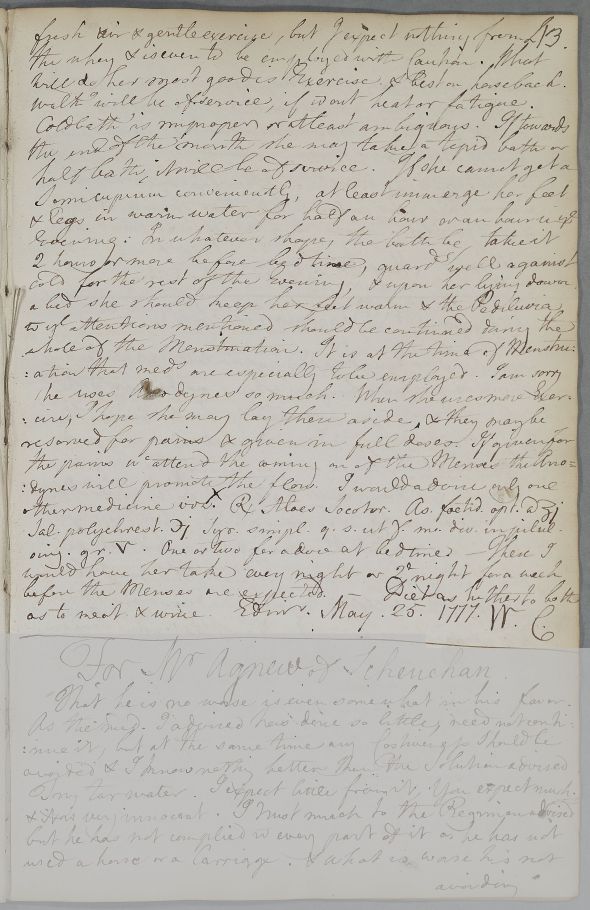 fresh air & gentle exercise, but I expect nothing from 213.
the whey & is even to be employed with caution. What
will do her most good is Exercise, & best on horseback.
Walkg will be of service, if wout heat or fatigue.
Cold bath is improper or at least ambiguous. If towards
the end of the month she may take a tepid bath or
half bath, it will be of service. If she cannot get a
Semicupium conveniently, at least immerge her feet
& legs in warm water for half an hour or an hour
Evening. In whatever shape, the bath be, take it
2 hours or more before bed time, guard well against
cold for the rest of the evening, & upon her lying down
a bed she should keep her feet warm & the Pediluvia
wt ye attentions mentioned should be continued during the
whole of the Menstruation. It is at the time of Menstru:
:ation that meds are especially to be employed. I am sorry
she uses Anodynes so much. When she uses more Exer:
:cise, I hope she may lay them aside, & they may be
reserved for pains & given in full doses. If given for
the pains wc attend the coming on of the Menses the Ano=
:dynes will promote the flow. I would advise only one
other medicine viz. x ℞ Aloes Socotor. As. foetid. opt. a ʒi
Sal. polychrest. ℈i Syr. simpl. q. s. ut f. m. div. in pilul.
sing. gr. V. One or two for a dose at bedtime. These I
would have her take every night or 2d night for a week
before the Menses are expected. Diet as hitherto both
as to meat & wine. Edinr. May. 25. 1777. W. C.
For Mr Agnew of Scheuchan.
That he is no worse is even somewhat in his favor.
As the med. I advised has done so little, need not conti:
:nue it, but at the same time any Costiveness should be
avoided & I know nothing better than the Solution advised
tar water. I expect little from it. You expect much
& it is very innocent. I trust much to the Regimen advised
but he has not complied wt every part of it as he has not
used a horse or a Carriage. & what is worse he's not
avoiding